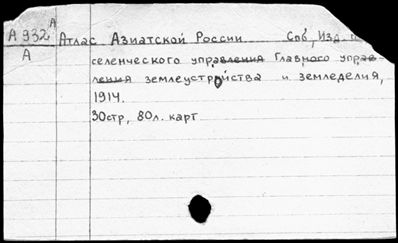 А
А 932 Атлас Азиатской России. Спб, Изд.
А селенческого управления Главного управ-
ления землеустройства и земледелия,
1914.
30стр, 80л. карт